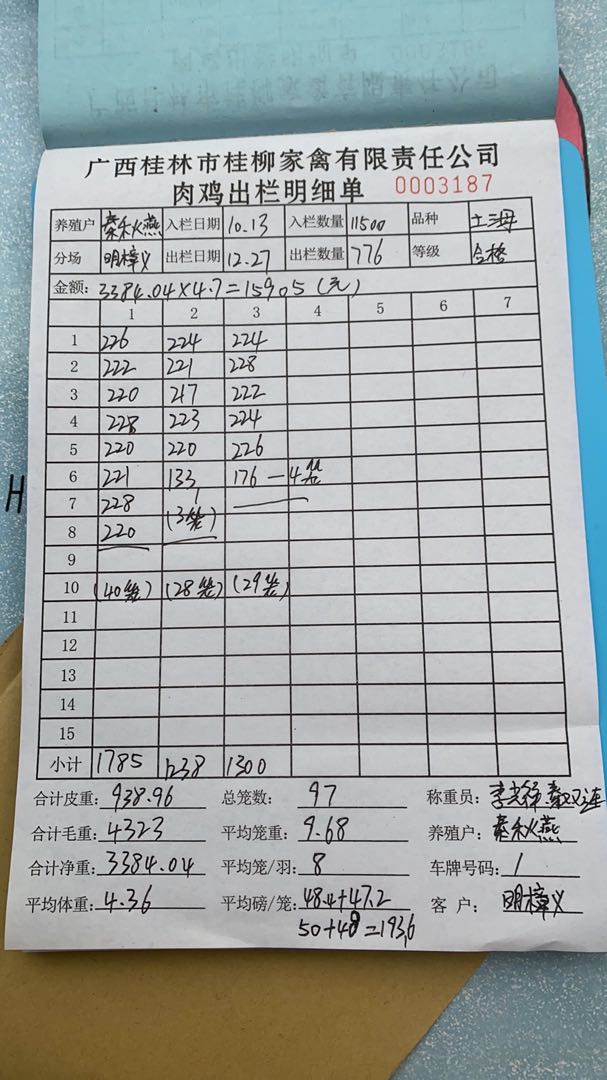 广西桂林市桂柳家禽有限责任公司
肉鸡出栏明细单 0003187
养殖户 秦秋燕 入栏日期 10.13 入栏数量 11500 品种 土三母
分场 明樟义 出栏日期 12.27 出栏数量 776 等级 合格
金额: 3384.04×4.7=15905(元)
1 2 3 4 5 6 7
1 226 224 224
2 222 221 228
3 220 217 222
4 228 223 224
5 220 220 226
6 221 133 176 — 4笼
7 228
8 220 (3笼)
9
10 (40笼) (28笼) (29笼)
11
12
13
14
15
小计 1785 1238 1300
合计皮重: 938.96 总笼数: 97 称重员: 李
合计毛重: 4323 平均笼重: 9.68 养殖户: 秦秋燕
合计净重: 3384.04 平均笼/羽: 8 车牌号码: /
平均体重: 4.36 平均磅/笼: 48.4+47.2 客户: 明樟义
50+48=193.6